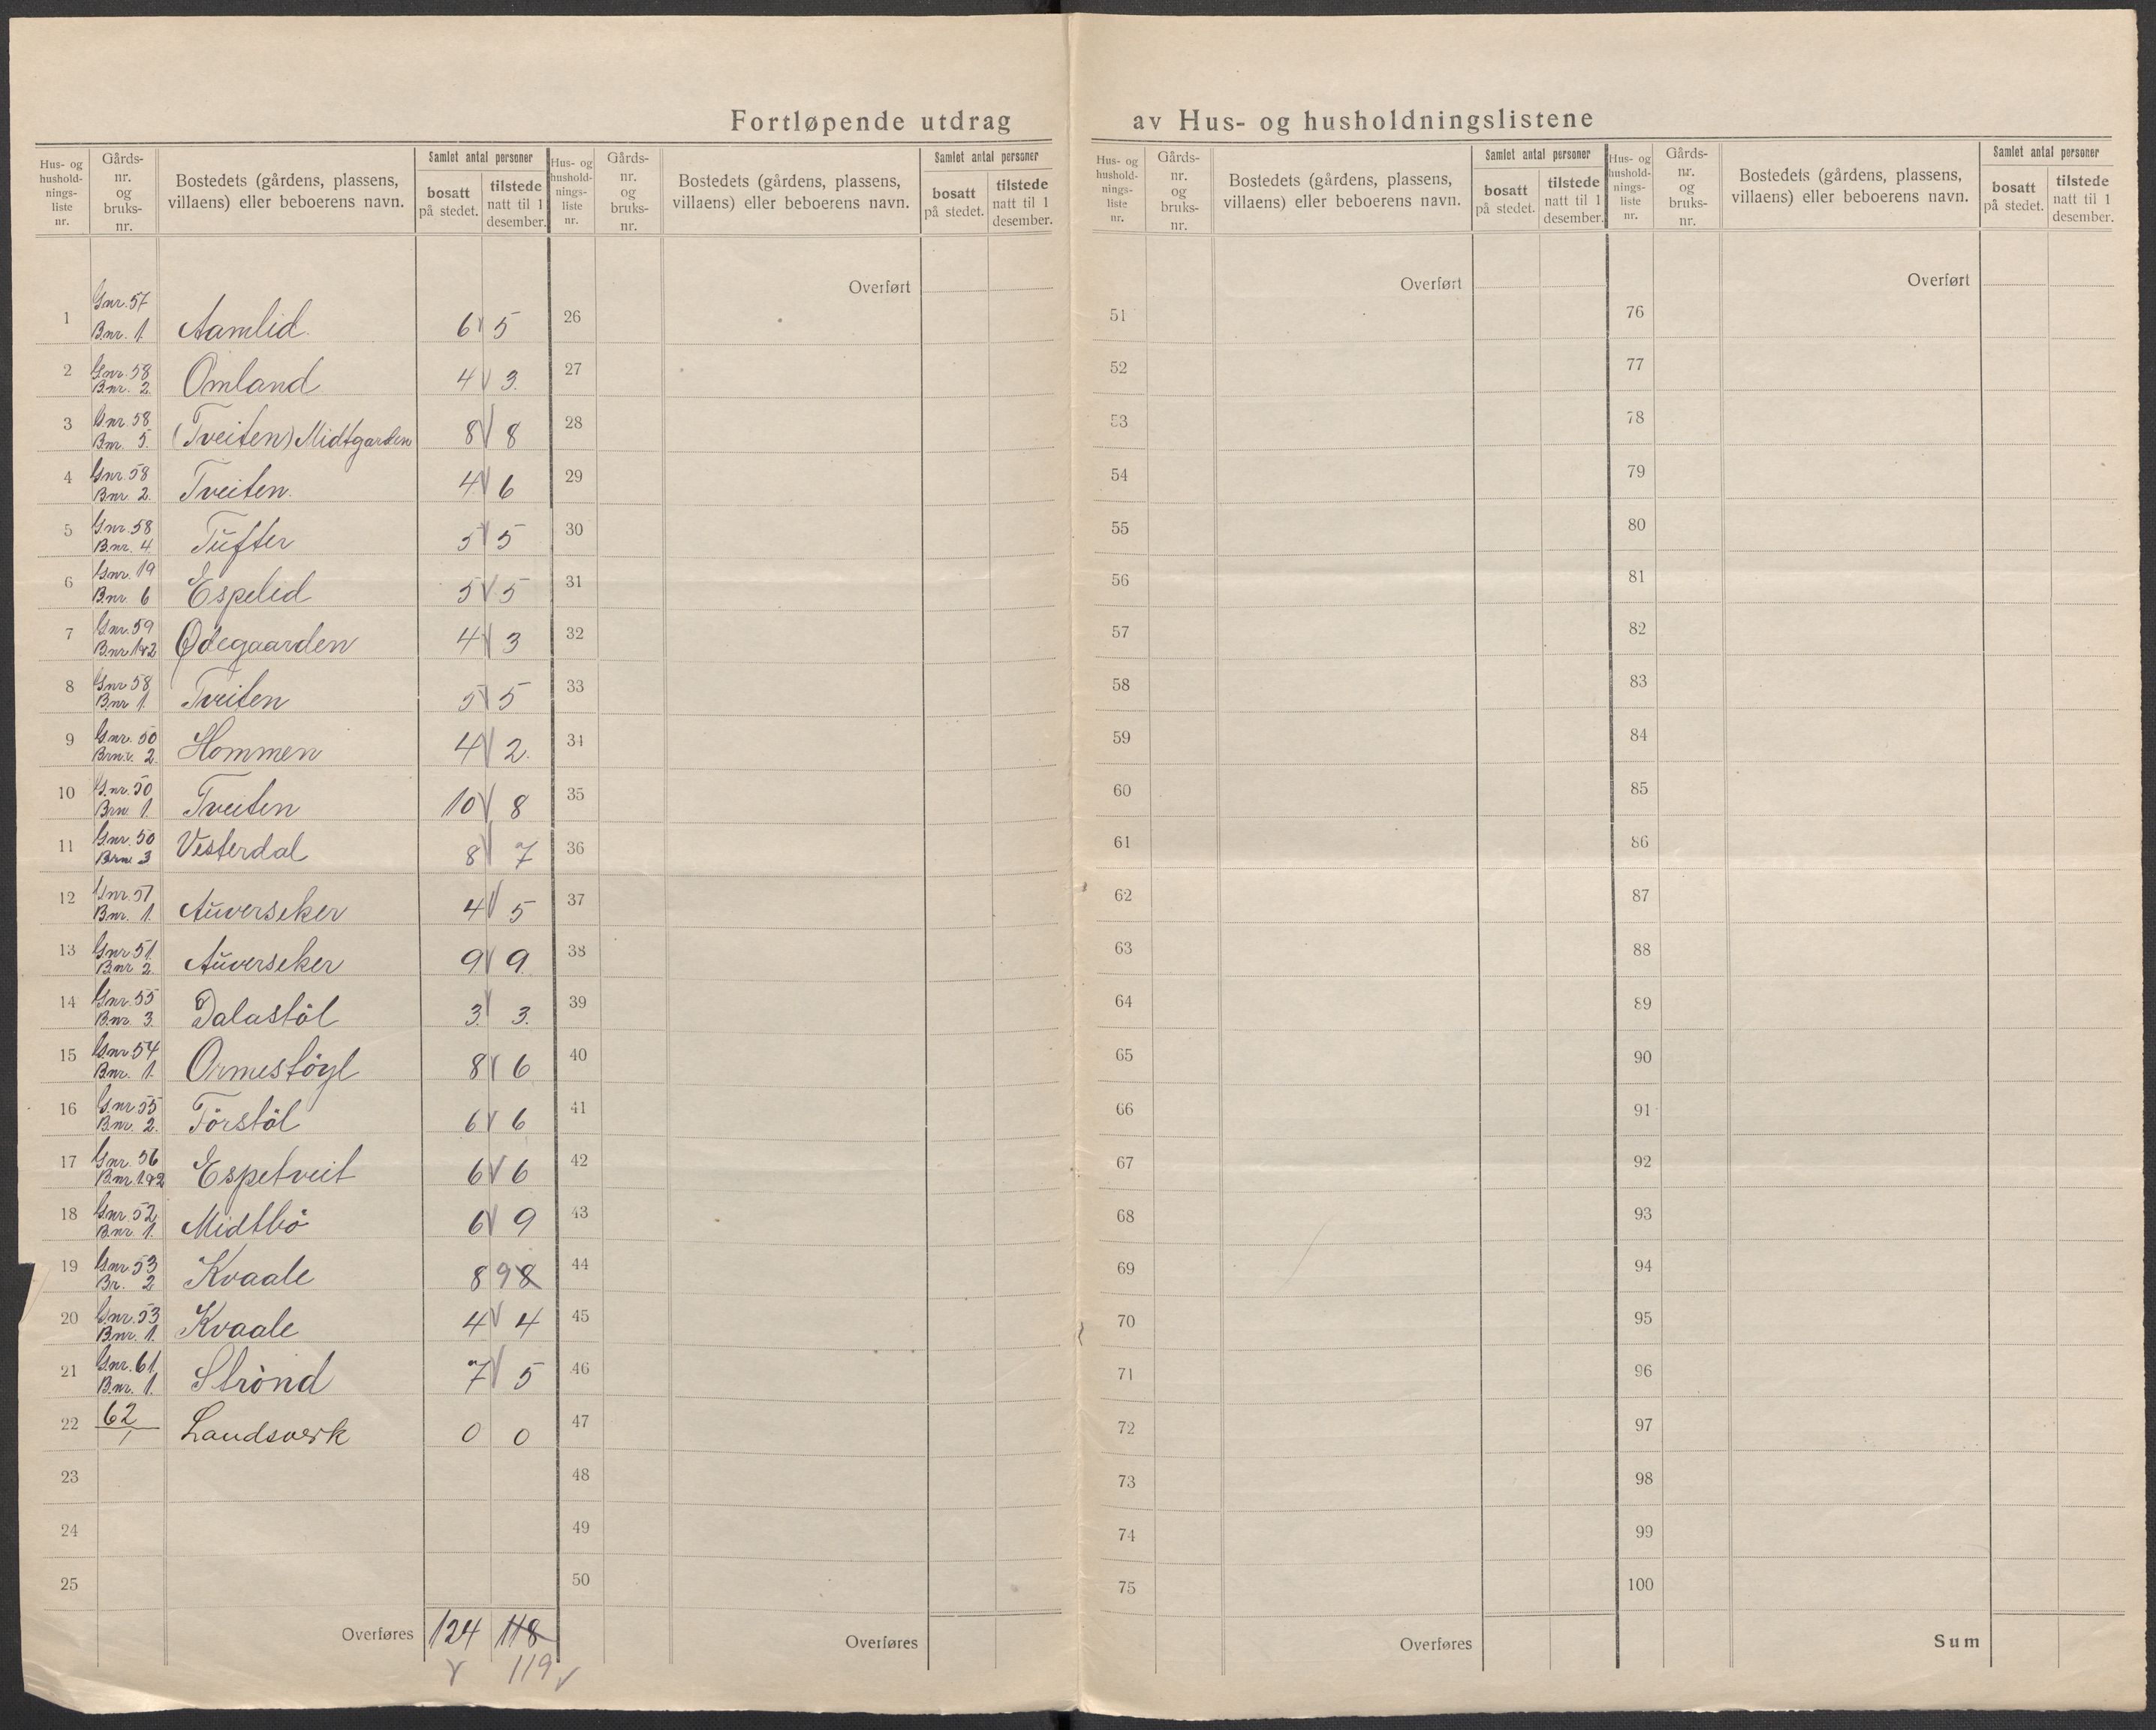 Fortløpende utdrag av Hus- og husholdningslistene
Hus- og husholdnings-liste nr. Gårds-nr. og bruks-nr. Bostedets (gårdens, plassens, villaens) eller beboerens navn. Samlet antal personer bosatt på stedet. tilstede natt til 1 desember.
Hus- og husholdnings-liste nr. Gårds-nr. og bruks-nr. Bostedets (gårdens, plassens, villaens) eller beboerens navn. Samlet antal personer bosatt på stedet. tilstede natt til 1 desember.
Hus- og husholdnings-liste nr. Gårds-nr. og bruks-nr. Bostedets (gårdens, plassens, villaens) eller beboerens navn. Samlet antal personer bosatt på stedet. tilstede natt til 1 desember.
Hus- og husholdnings-liste nr. Gårds-nr. og bruks-nr. Bostedets (gårdens, plassens, villaens) eller beboerens navn. Samlet antal personer bosatt på stedet. tilstede natt til 1 desember.
1 Gnr. 57 Bnr. 1. Aamlid. 6 5
2 Gnr. 58 Bnr. 2. Omland 4 3.
3 Gnr. 58 Bnr. 5. (Tveiten) Midtgarden 8 8
4 Gnr. 58 Bnr. 2. Tveiten. 4 6
5 Gnr. 58 Bnr. 4. Tufter 5 5
6 Gnr. 19 Bnr. 6 Espelid 5 5
7 Gnr. 59 Bnr 1&2 Ødegaarden 4 3
8 Gnr 58 Bnr 1. Tveiten 5 5
9 Gnr. 50 Brnr. 2. Hommen 4 2.
10 Gnr. 50 Brn. 1. Tveiten 10 8
11 Gnr. 50 Brn. 3 Vesterdal 8 7
12 Gnr. 51 Bnr. 1. Auverseker 4 5
13 Gnr 51. Bnr 2. Auverseker 9 9
14 Gnr. 55 Bnr. 3. Dalastöl 3. 3.
15 Gnr 54 Bnr. 1. Ormestöyl 8 6
16 Gnr 55 Bnr. 2. Törstöl 6 6
17 Gnr. 56 Bnr 1&2 Espetveit 6 6
18 Gnr. 52 Bnr. 1. Midtbö 6 9
19 Gnr. 53 Br. 2 Kvaale 8 9 8
20 Gnr. 53 Bnr. 1. Kvaale 4 4
21 Gnr. 61. Bnr. 1. Strönd 7 5
22 62/1 Landsverk 0 0
23
24
25
Overføres 124 118
119
Overført
26
27
28
29
30
31
32
33
34
35
36
37
38
39
40
41
42
43
44
45
46
47
48
49
50
Overføres
Overført
51
52
53
54
55
56
57
58
59
60
61
62
63
64
65
66
67
68
69
70
71
72
73
74
75
Overføres
Overført
76
77
78
79
80
81
82
83
84
85
86
87
88
89
90
91
92
93
94
95
96
97
98
99
100
Sum